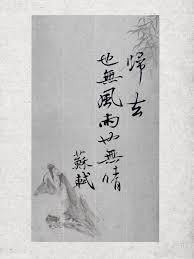 歸去
也無風雨也無情
蘇軾